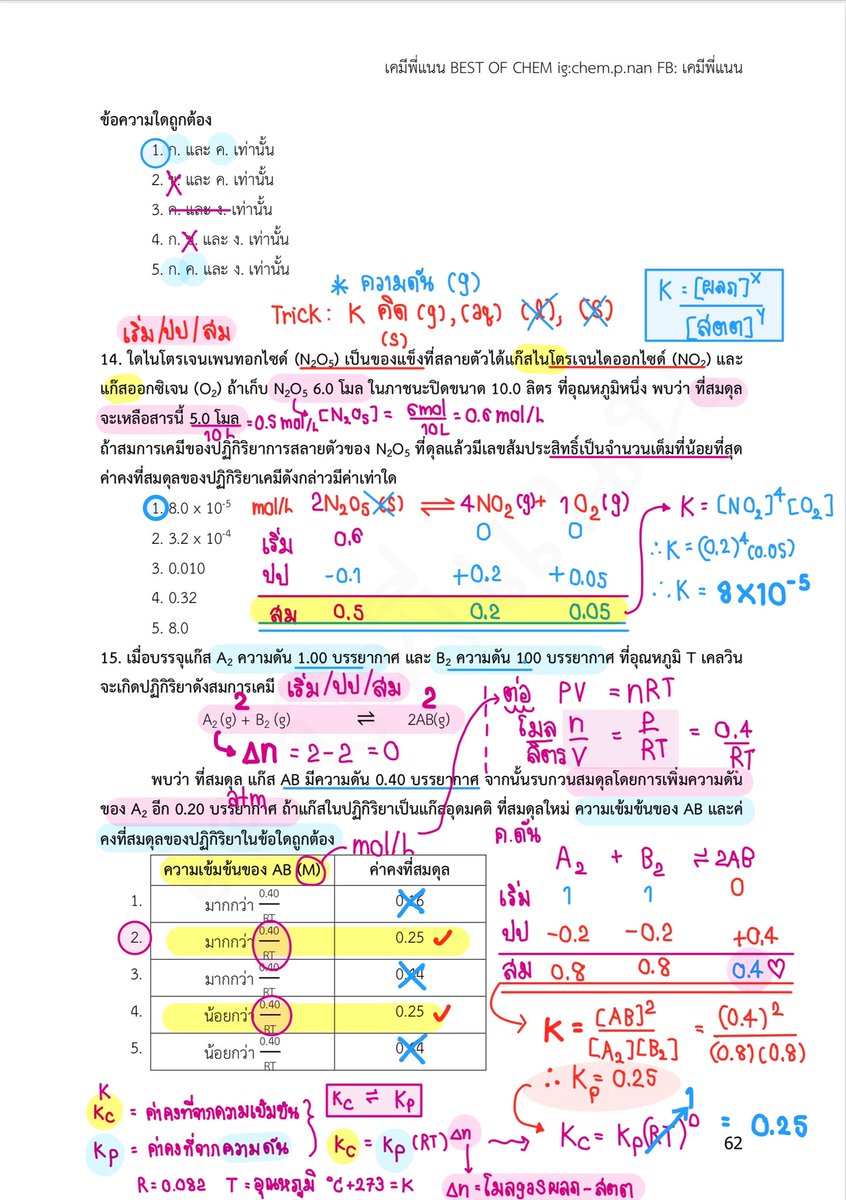 เคมีพี่แนน BEST OF CHEM ig:chem.p.nan FB: เคมีพี่แนน
ข้อความใดถูกต้อง
1. ก. และ ค. เท่านั้น
2. ข. และ ค. เท่านั้น
3. ค. และ ง. เท่านั้น
4. ก. ข. และ ง. เท่านั้น
5. ก. ค. และ ง. เท่านั้น
* ความดัน (g)
Trick: K คิด (g), (aq) (l), (s)
(s)
K = [ผลภ]ˣ
[สตต]ʸ
เริ่ม/ปป/สม
14. ไดไนโตรเจนเพนทอกไซด์ (N₂O₅) เป็นของแข็งที่สลายตัวได้แก๊สไนโตรเจนไดออกไซด์ (NO₂) และ
แก๊สออกซิเจน (O₂) ถ้าเก็บ N₂O₅ 6.0 โมล ในภาชนะปิดขนาด 10.0 ลิตร ที่อุณหภูมิหนึ่ง พบว่า ที่สมดุล
จะเหลือสารนี้ 5.0 โมล
10L = 0.5 mol/L [N₂O₅] = 6mol/10L = 0.6 mol/L
ถ้าสมการเคมีของปฏิกิริยาการสลายตัวของ N₂O₅ ที่ดุลแล้วมีเลขสัมประสิทธิ์เป็นจำนวนเต็มที่น้อยที่สุด
ค่าคงที่สมดุลของปฏิกิริยาเคมีดังกล่าวมีค่าเท่าใด
1. 8.0 x 10⁻⁵
2. 3.2 x 10⁻⁴
3. 0.010
4. 0.32
5. 8.0
mol/L 2N₂O₅ (s) ⇌ 4NO₂(g) + 1O₂(g)
เริ่ม 0.6 0 0
ปป -0.1 +0.2 +0.05
สม 0.5 0.2 0.05
K = [NO₂]⁴[O₂]
∴K = (0.2)⁴(0.05)
∴K = 8×10⁻⁵
15. เมื่อบรรจุแก๊ส A₂ ความดัน 1.00 บรรยากาศ และ B₂ ความดัน 1.00 บรรยากาศ ที่อุณหภูมิ T เคลวิน
จะเกิดปฏิกิริยาดังสมการเคมี เริ่ม/ปป/สม
2 2
A₂ (g) + B₂ (g) ⇌ 2AB(g)
Δn = 2-2 = 0
ต่อ PV = nRT
โมล/ลิตร n/V = P/RT = 0.4/RT
พบว่า ที่สมดุล แก๊ส AB มีความดัน 0.40 บรรยากาศ จากนั้นรบกวนสมดุลโดยการเพิ่มความดัน
atm
ของ A₂ อีก 0.20 บรรยากาศ ถ้าแก๊สในปฏิกิริยาเป็นแก๊สอุดมคติ ที่สมดุลใหม่ ความเข้มข้นของ AB และค่า
คงที่สมดุลของปฏิกิริยาในข้อใดถูกต้อง
mol/L
ความเข้มข้นของ AB (M) ค่าคงที่สมดุล
1. มากกว่า 0.40/RT 0.16
2. มากกว่า 0.40/RT 0.25 ✓
3. มากกว่า 0.40/RT 0.44
4. น้อยกว่า 0.40/RT 0.25 ✓
5. น้อยกว่า 0.40/RT 0.44
ค.ดัน
A₂ + B₂ ⇌ 2AB
เริ่ม 1 1 0
ปป -0.2 -0.2 +0.4
สม 0.8 0.8 0.4♡
K = [AB]²/[A₂][B₂] = (0.4)²/(0.8)(0.8)
∴ Kp = 0.25
1
Kc = Kp(RT)⁰ = 0.25
K
Kc = ค่าคงที่จากความเข้มข้น
Kp = ค่าคงที่จากความดัน
Kc ⇌ Kp
Kc = Kp (RT)^Δn
R = 0.082 T = อุณหภูมิ °C+273 = K
Δn = โมลgasผลภ - สตต
62